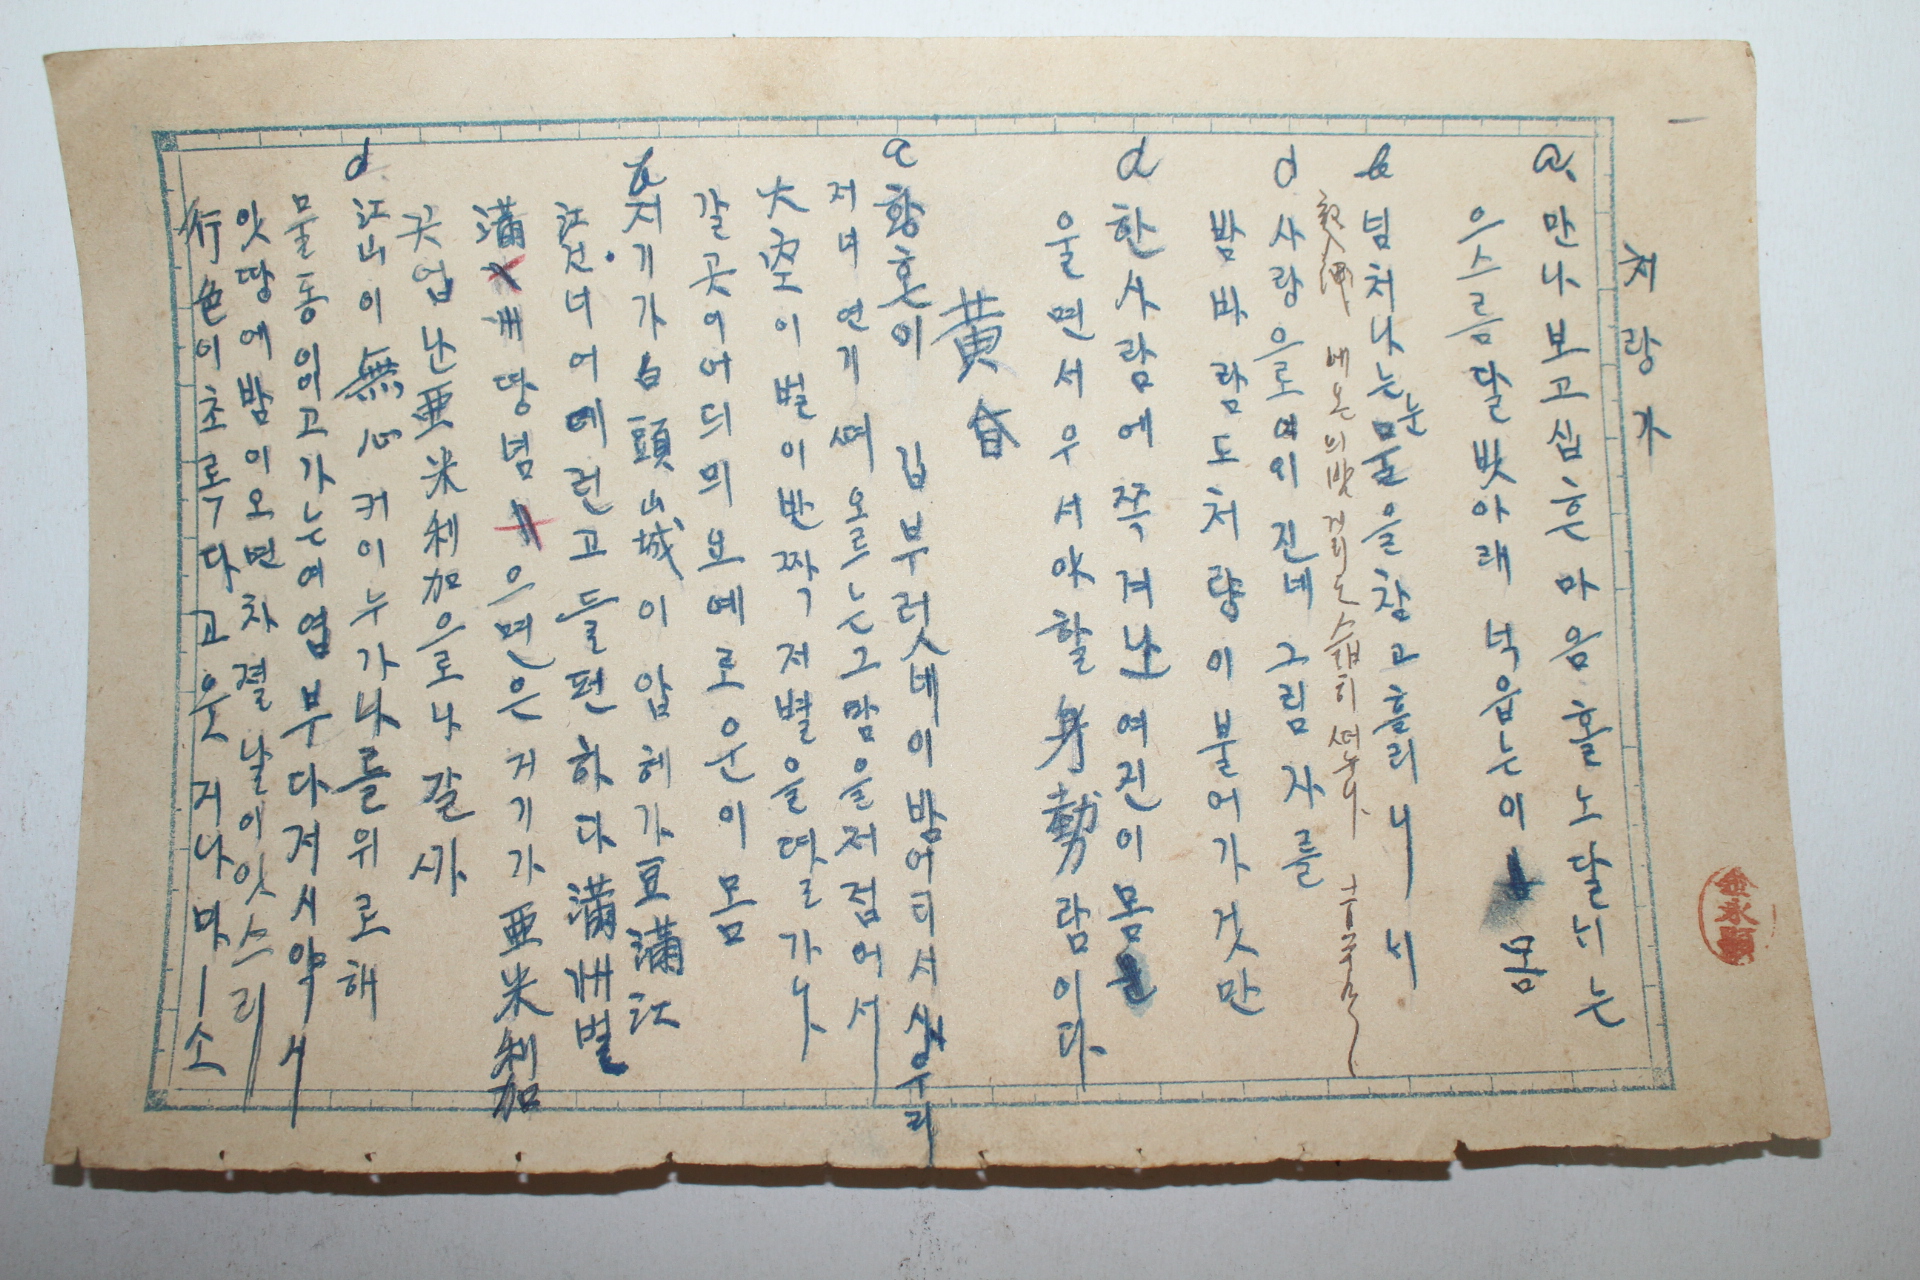 처량가
a. 만나보고십흔마음홀노달내는
으스름달밧아래넉읍는이 몸
b 넘처나는눈물을참고흘리니 서
에는 의밧거리도 히
d 사랑으로여위진네그림자를
밤바람도처량이불어가것만
d 한사람에쪽겨난여진이몸
울면서우서야할身勢람이다
黃昏
a 황혼이 깁부럿네이밤어디서새우리
저녁연기떠오르는그맘을저접어서
大空이별이반짝저별을따르가나
갈곳이어듸믜뇨예로운이몸
b 저기가白頭山城이압헤가豆滿江
江건너어예런고들편하다滿洲벌
滿洲땅념으면은거기가亜米利加
곳업난亜米利加으로나갈가
d 江山이無心커이누가나를위로해
물동이이고가는여엽부다저시악시
잇땅에밤이오면차졀날에잇스리
行色이초록다고웃거나마ㅣ소
金永